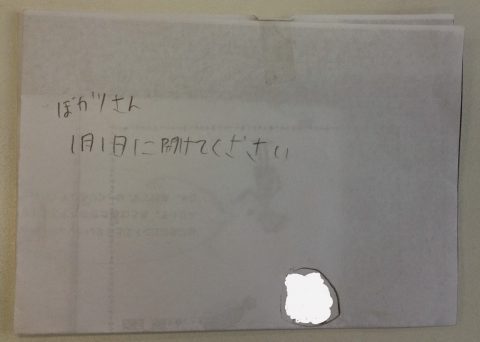 ぼガリさん
1月1日に開けてください